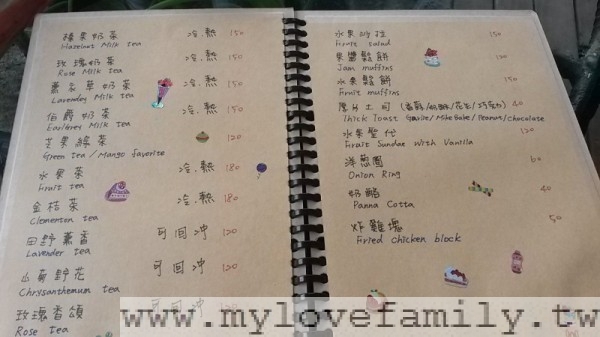 榛果奶茶 冷.熱 150
Hazelnut Milk tea
玫瑰奶茶 冷.熱 150
Rose Milk tea
薰衣草奶茶 冷.熱 150
Lavender Milk tea
伯爵奶茶 冷.熱 150
Earlgrey Milk tea
芒果綠茶 120
Green tea/Mango favorite
水果茶 冷.熱 180
Fruit tea
金桔茶 冷.熱 180
Clementon tea
田野薰香 可回沖 120
Lavender tea
山菊野花 可回沖 120
Chrysanthemum tea
玫瑰香頌 可回沖 120
Rose tea
水果沙拉 150
Fruit salad
果醬鬆餅
Jam muffins
水果鬆餅 150
Fruit muffins
厚片土司 (香蒜/奶酥/花生/巧克力) 40
Thick Toast Garlic/Milk Bake/Peanut/Chocolate
水果聖代 120
Fruit Sundae With Vanilla
洋葱圈 60
Onion Ring
奶酪 40
Panna Cotta
炸雞塊 50
Fried chicken block
www.mylovefamily.tw